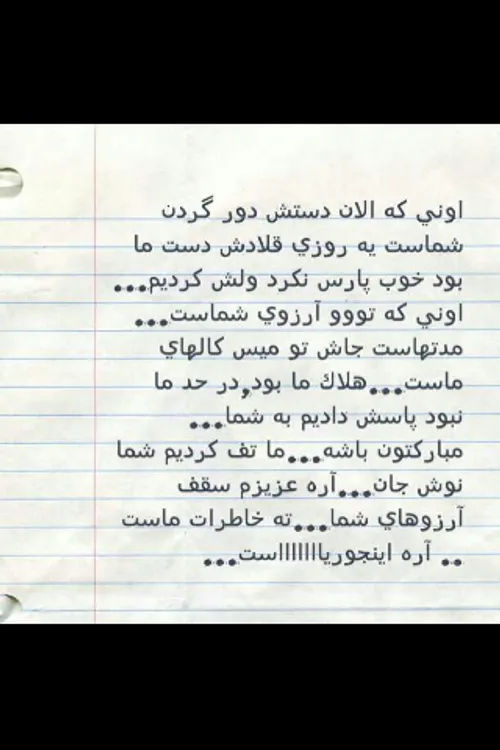 اوني كه الان دستش دور گردن
شماست يه روزي قلادش دست ما
بود خوب پارس نكرد ولش كرديم...
اوني كه تووو آرزوي شماست...
مدتهاست جاش تو ميس كالهاي
ماست...هلاك ما بود,در حد ما
نبود پاسش داديم به شما...
مباركتون باشه...ما تف كرديم شما
نوش جان...آره عزيزم سقف
آرزوهاي شما...ته خاطرات ماست
.. آره اينجورياااااااست...